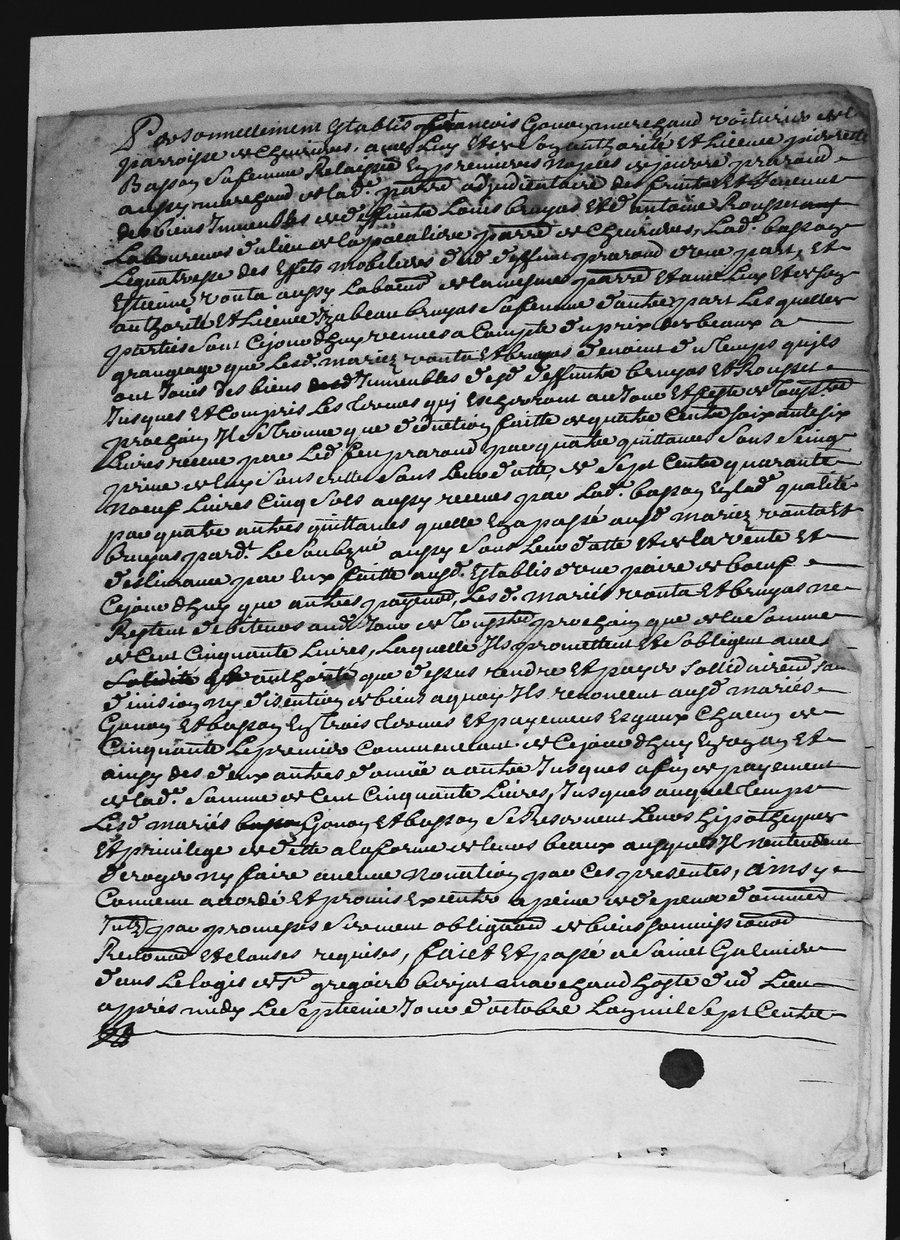 Personnellement Establis françois Gonon marchand voiturier de la
parroisse de Chevrieres, avec luy et de son authorité et licence pierrette
Basson sa femme Relaissée En premieres Nopces de pierre praraud
aussy marchand de lad. parre adjudicataire des fruits et Revenus
des biens Immeubles de deffunts Louis bruyas et d'antoine Rousset
Laboureurs du lieu de la parre de Chevrieres, Lad. basson
des Effets mobiliers dud. deffunt praraud d'une part, et
Estienne vonta aussy Labour de la mesme parre et avec luy et de son
authorité et licence Izabeau bruyas sa femme d'autre part Lesquelles
parties sont Cejourdhuy venues a Compte du prix des beaux a
grangeage que Lesd. mariez vonta et bruyas devoint du temps quils
ont Jouis des biens Immeubles desd. deffunts bruyas et Rousset
Jusques et Compris Les termes qui Escherront au Jour et feste de toussts
prochain Il sestrouve que deduction faitte de quatre Cents soixante six
Livres receue par Led. feu praraud par quatre quittances sous seing
prive de luy sans datte, de sept Cents quarante
Noeuf Livres Cinq sols aussy receues par Lad. basson En lad. qualité
par quatre autres quittances quelle En a passé ausd. mariez vonta et
bruyas pard. Le soubzné aussy sous leur datte et de la vente et
deslivrance par Eux faitte ausd. Establis d'une paire de boeuf
Cejourdhuy que autres payemts, Lesd. mariés vonta et bruyas ne
Restent debiteurs aud. Jour de toussts prochain que de la somme
de Cent Cinquante Livres, Laquelle Ils promettent et sobligent avec
authorité que dessus rendre et payer sollidairemt sans
division ny disention de biens a quoy Ils renoncent ausd. mariés
Gonon et basson En trois termes et payements Esgaux Chacun de
Cinquante Le premier Commencant de Cejourdhuy En un an et
ainsy des deux autres d'année a autre Jusques a fin de payement
de lad. somme de Cent Cinquante Livres, Jusques auquel temps
Lesd. mariés Gonon et basson se Reservent Leurs hipotheques
et privilege de datte a la forme de leurs beaux ausquels Il nentendent
deroger ny faire aucune Novation par ces presentes, ainsy
Convenu accordé et promis Executer a peine de depens dommes
Intz par promesses serement obligaon de biens soumissions
Renons et clauses requises, faict et passé a Saint Galmier
dans Le logis de sr gregoire marchand hoste dud. Lieu
apprés midy Le septieme Jour d'octobre Lan mil sept Cents